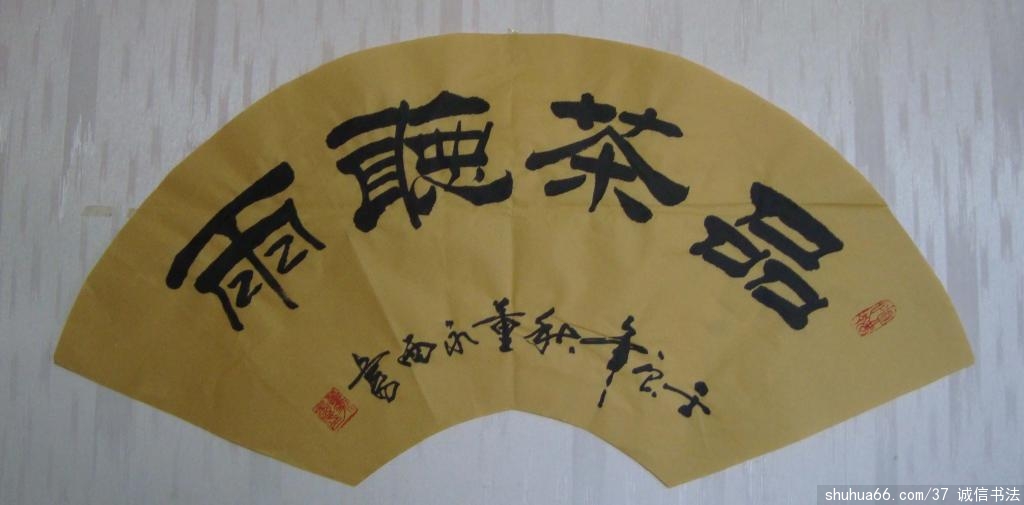 品茶聽雨
年秋董永西書
shuhua66.com/37 诚信书法